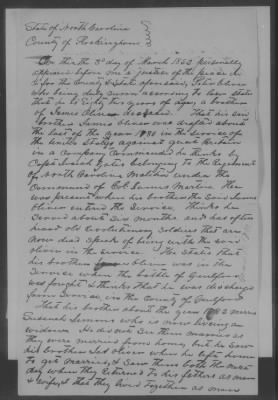 State of North Carolina
County of Rockingham
On this the 3d day of March 1853 personally
appears before me a Justice of the peace in
& for the County & State aforesaid, Peter Oliver
who being duly sworn according to law states
that he is Eighty two years of age, a brother
of James Oliver deceased. That his said
brother James Oliver was drafted about
the last of the year 1780 in the service of
the United States against great Britain
in a Company Commanded he thinks by
Capt. belonging to the Regiment
of North Carolina Militia under the
Command of Col James Martin. He
was present when his brother the said James
Oliver entered the Service. thinks he
served about six months and has often
heard old Revolutionary Soldiers that are
now dead speak of being with the said
Oliver in the service. He states that
his brother James Oliver was in the
Service when the battle of Guilford
was fought & thinks that he was discharged
from Service in the County of Guilford
That his brother about the year married
Susanah Simmons who is now living a
widow. He did not see them married as
they were married from home, but he saw
his brother James Oliver when he left home
to get married, & saw them both the next
day when they returned to his fathers as man
& wife, & that they lived together as man